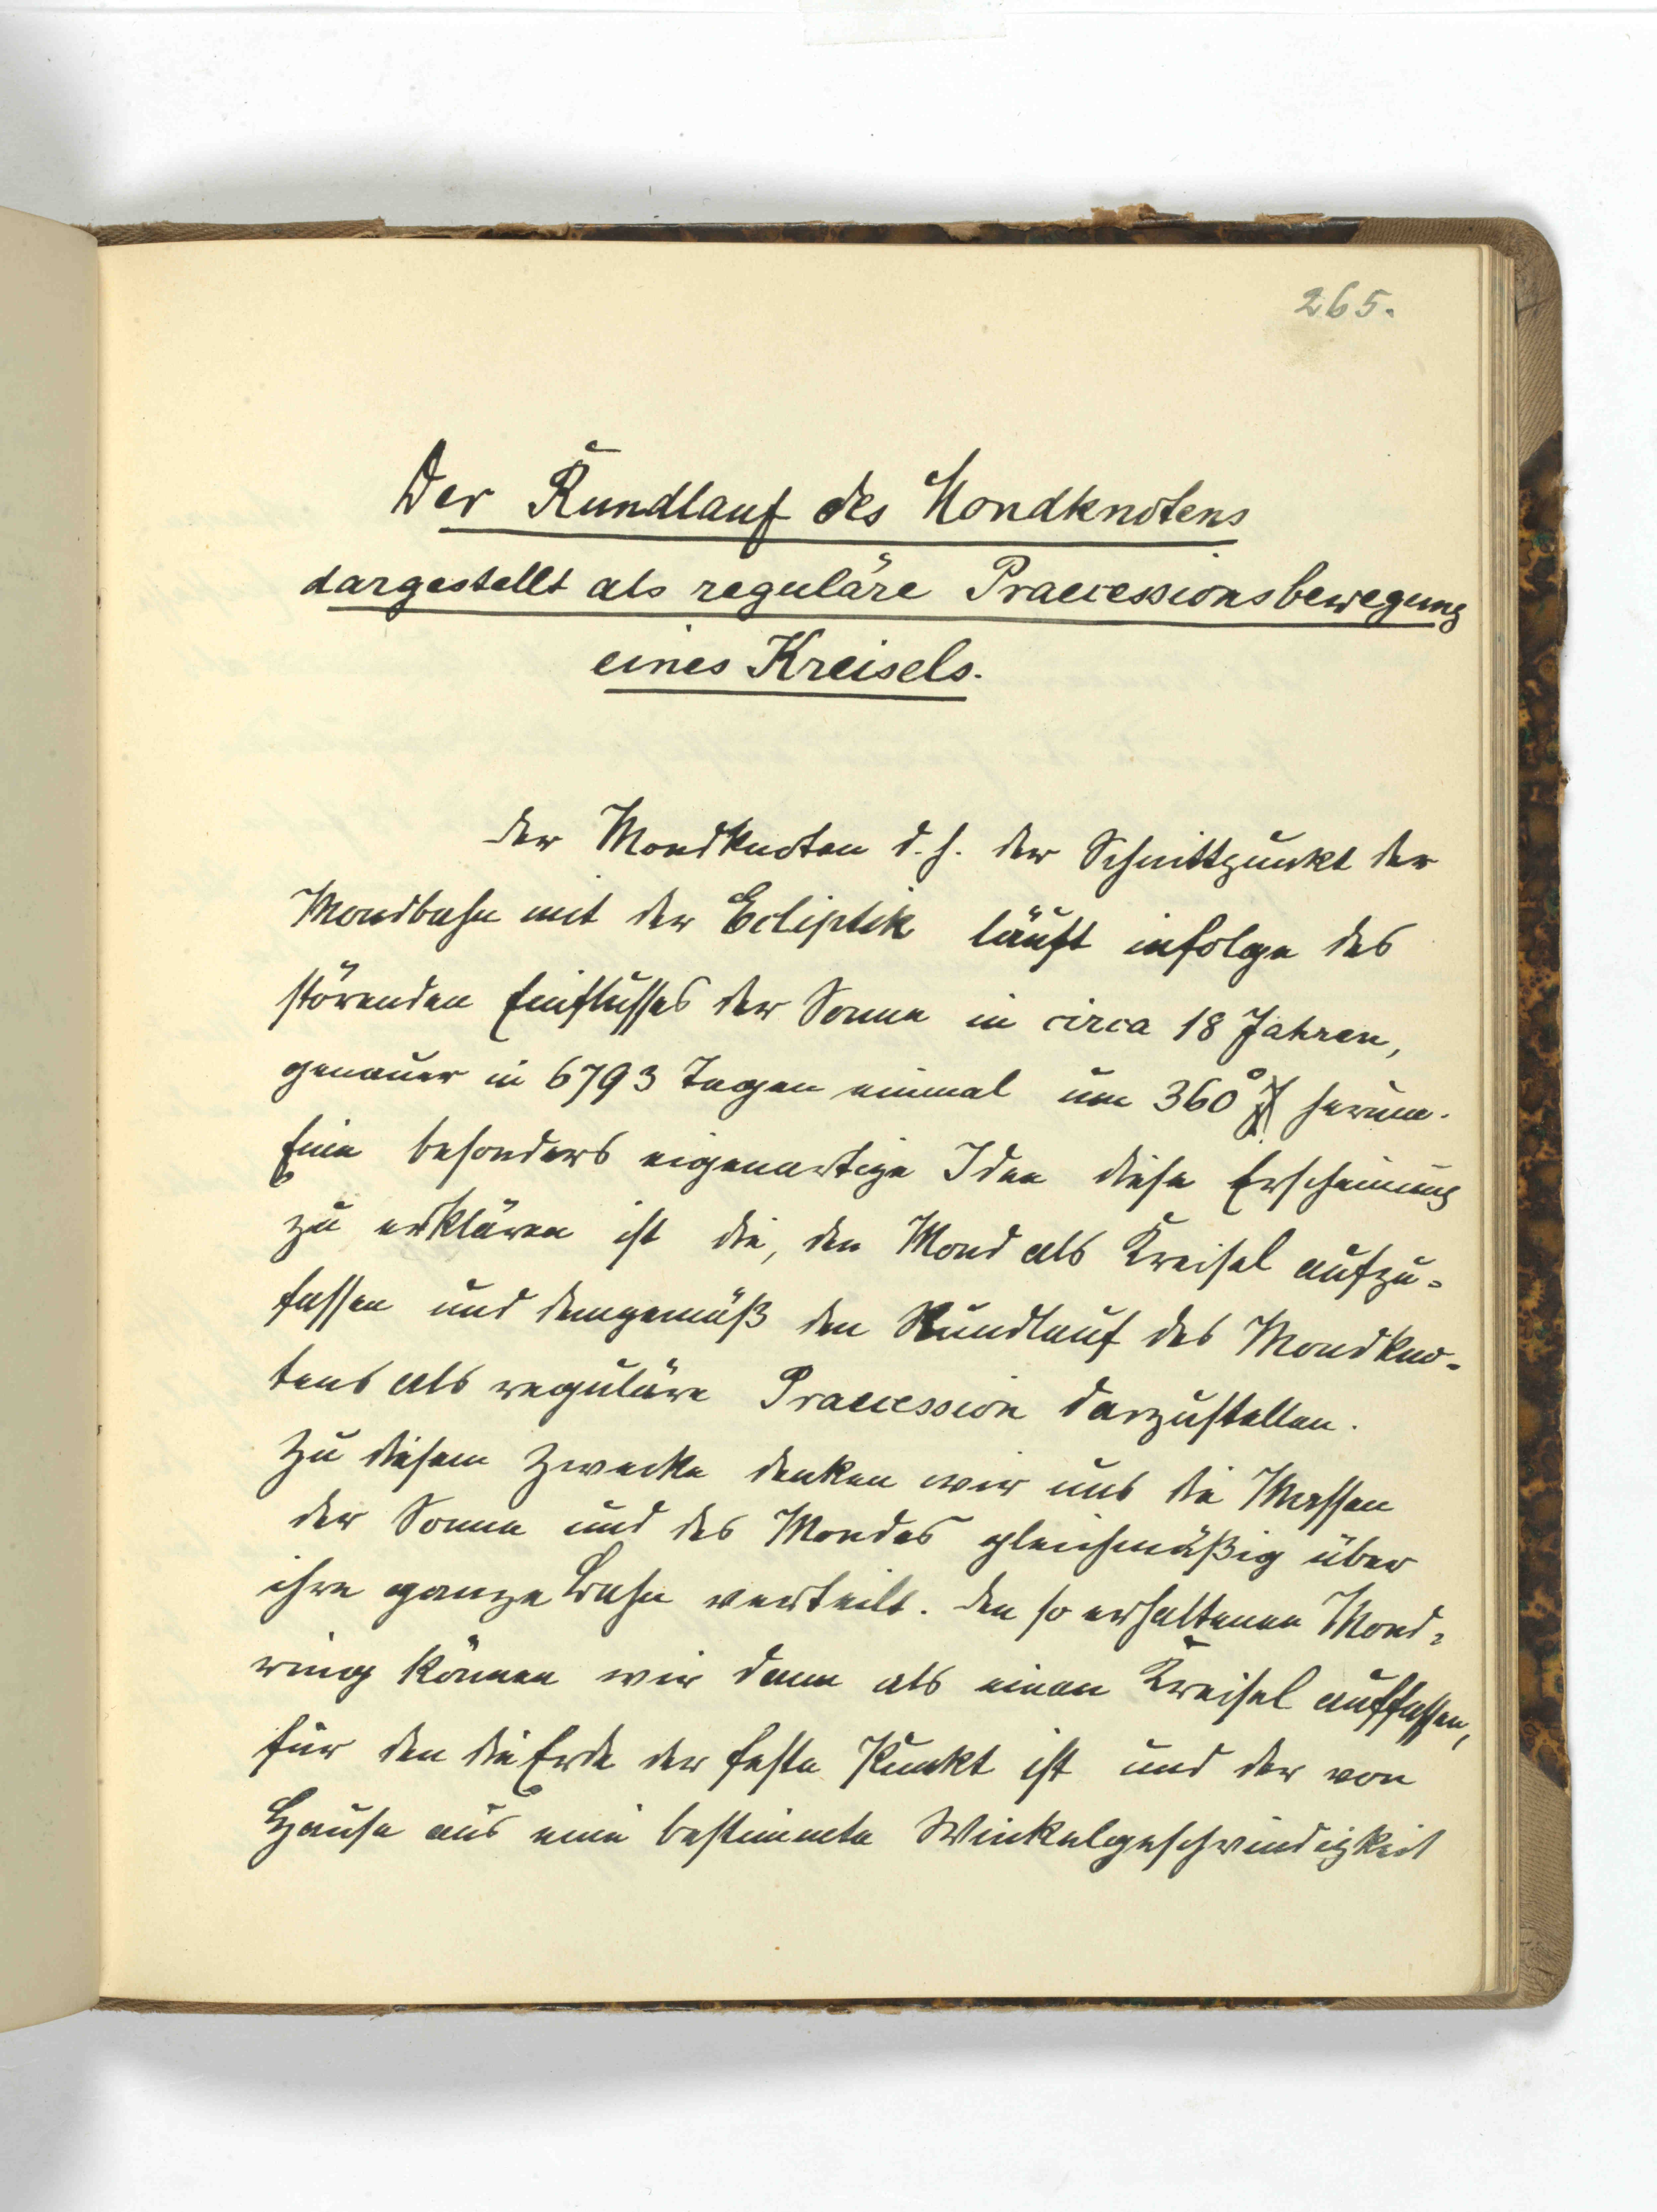 265.
Der Rundlauf des Mondknotens
dargestellt als reguläre Praecessionsbewegung
eines Kreisels.
Der Mondknoten d. h. der Schnittpunkt der
Mondbahn mit der Ecliptik läuft infolge des
störenden Einflusses der Sonne in circa 18 Jahren,
genauer in 6793 Tagen einmal um 360° herum.
Eine besonders eigenartige Idee diese Erscheinung
zu erklären ist die, den Mond als Kreisel aufzu-
fassen und demgemäß den Rundlauf des Mondkno-
tens als reguläre Praecession darzustellen.
Zu diesem Zwecke denken wir uns die Massen
der Sonne und des Mondes gleichmäßig über
ihre ganze Bahn verteilt. Den so erhaltenen Mond-
ring können wir dann als einen Kreisel auffassen,
für den die Erde der feste Punkt ist und der von
Hause aus eine bestimmte Winkelgeschwindigkeit